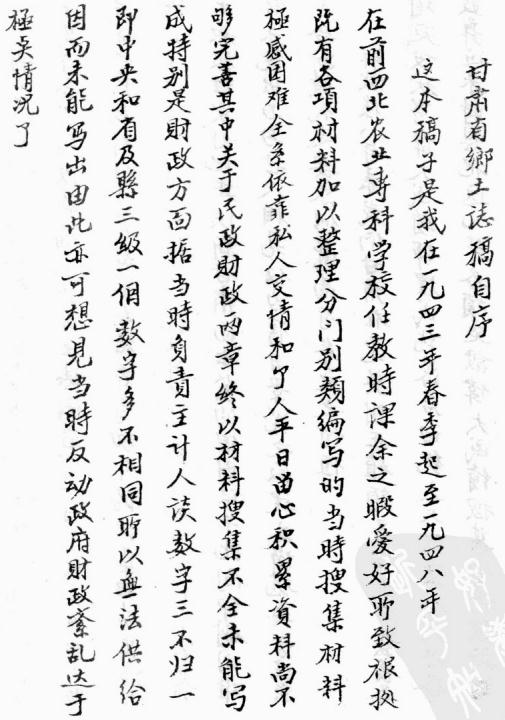 甘肃省鄉土誌稿自序
这本稿子是我在一九四三年春季起至一九四八年
在前西北农业專科学校任教時課余之暇愛好所致根拠
既有各項材料加以整理分门別類编写的当時搜集材料
極感困难全系依靠私人交情和个人平日留心积累資料尚不
够完善其中关于民政財政两章终以材料搜集不全未能写
成特别是財政方面据当時負責主计人谈数字三不归一
即中央和省及縣三级一個数字多不相同所以無法供给
因而未能写出由此亦可想見当時反动政府財政紊乱达于
極矣情况了